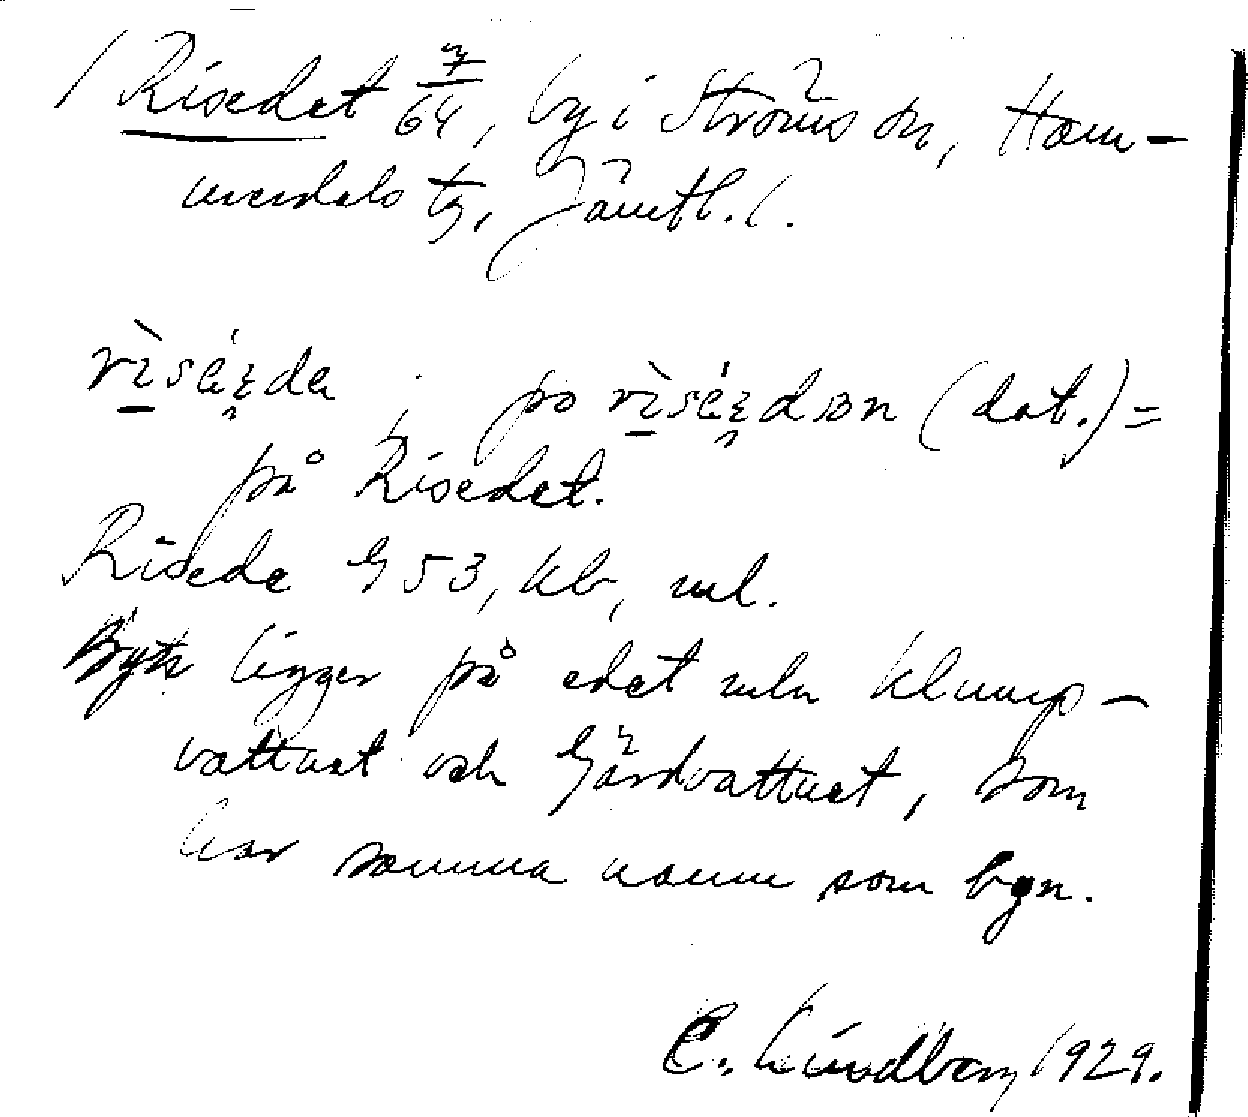 / Risedet 7/64, by i Ströms sn, Ham-
merdals tg, Jämtl. l.
på Risedet.
Risede G 53, kb, ml.
Byn ligger på edet mln Klump-
vattnet och Gårdvattnet, som
har samma namn som byn.
C. Lindberg 1929.